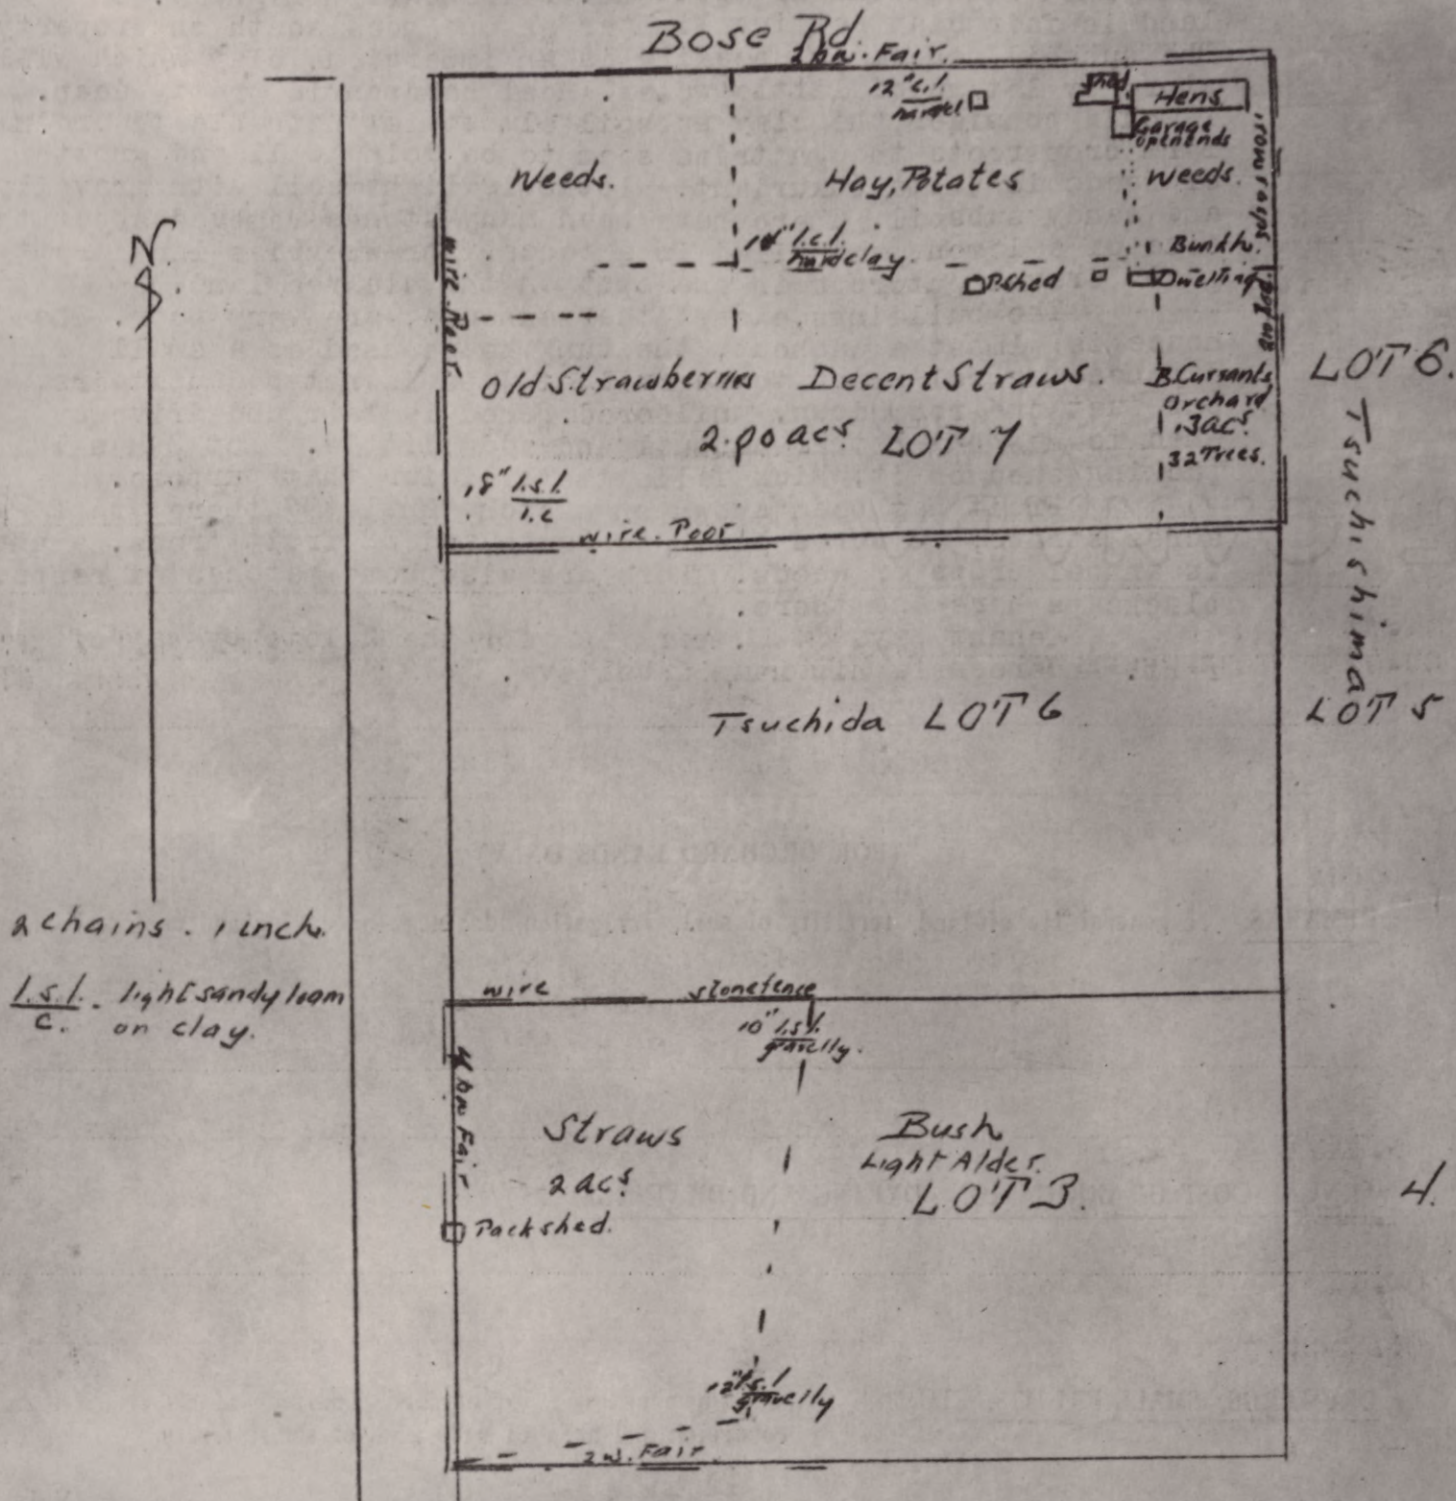 Bose Rd.
2 bw. Fair.
12" c.l.
Shed
Hens
Garage
openends
Weeds.
Hay, Potates
Weeds.
l.c.l.
clay
Bunkh.
P.shed
Dwelling
wire. Poor
Old Strawberries
Decent Straws.
B.Currants
Orchard
.3acs.
32 Trees.
2.90 acs. LOT 7
8" l.s.l.
l.c
wire. Poor
LOT 6.
Tsuchishima
LOT 5
Tsuchida LOT 6
N
2 chains. 1 inch.
l.s.l. light sandy loam
c. on clay.
wire
stonefence
10" l.s.l.
gravelly.
4 bw Fair
Straws
2 acs.
Packshed.
Bush
Light Alder.
LOT 3.
4.
12" l.s.l.
gravelly
2 w. Fair